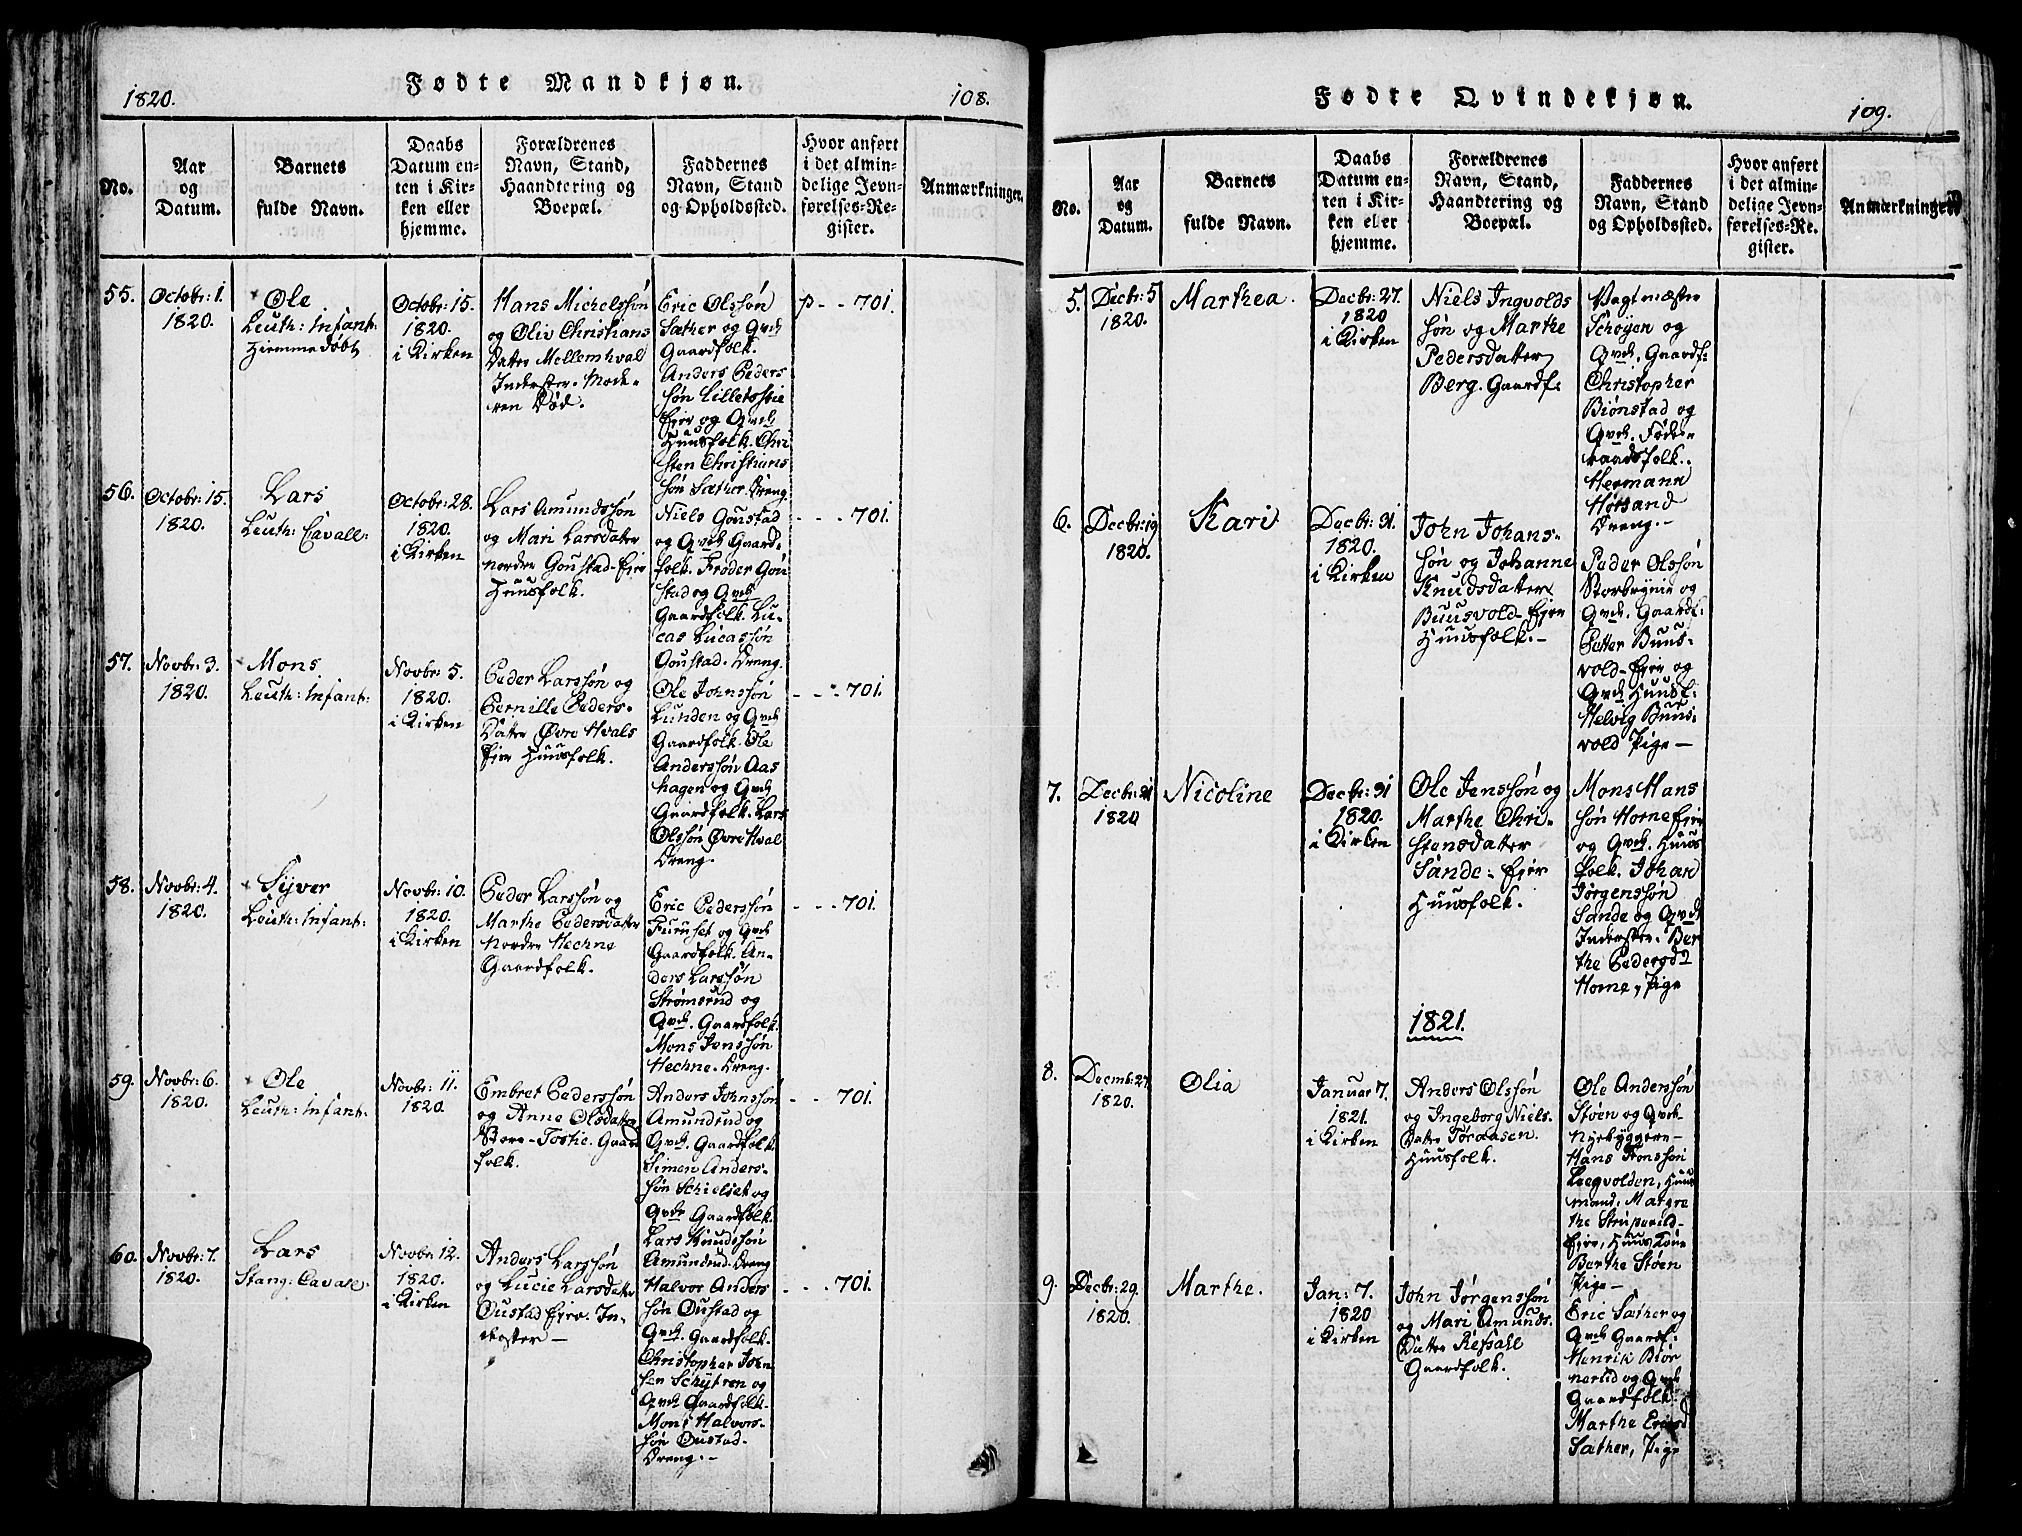 1820.
Fødte Mandkjøn.
108.
No.
Aar
og
Datum.
Barnets
fulde Navn.
Daabs
Datum en-
ten i Kir-
ken eller
hjemme.
Forældrenes
Navn, Stand,
Haandtering og
Boepæl.
Faddernes
Navn, Stand
og Opholdssted.
Hvor anført
i det almin-
delige Jevn-
førelses-Re-
gister.
Anmærkninger.
55.
Octobr: 1.
1820.
Ole
Leuth: Infant:
Hiemmedøbt
Octobr: 15.
1820.
i Kirken
Hans Michelssøn
og Oliv Christians
Datter Mellemhval
Inderster. Mode-
ren Død.
Eric Olssøn
Sæther og Qvd:
Gaardfolk.
Anders Peders
søn
Eier og Qvd:
Huusfolk. Chri
sten Christians
søn Sæther. Dreng.
p - - 701.
56.
Octobr: 15.
1820.
Lars
Leuth: Cavall:
Octobr: 28.
1820.
i Kirken
Lars Amundssøn
og Mari Larsdatter
nordre Goustad-Eier
Huusfolk.
Niels Goustad
og Qvd: Gaard-
folk. Frøder Gou
stad og Qvd:
Gaardfolk. Lu-
cas Lucassøn
Goustad. Dreng.
- - - 701.
57.
Novbr: 3.
1820.
Mons
Leuth: Infant:
Novbr: 5.
1820.
i Kirken
Peder Larssøn og
Pernille Peders-
Datter Øvre Hvals
Eier Huusfolk.
Ole Johnssøn
Lunden og Qvd:
Gaardfolk. Ole
Anderssøn Aas
hagen og Qvd:
Gaardfolk. Lars
Olssøn Øvre Hval
Dreng.
- - - 701.
58.
Novbr: 4.
1820.
Syver
Leuth: Infant:
Novbr: 10.
1820.
i Kirken
Peder Larssøn og
Marthe Pedersdatter
Nordre Hechne
Gaardfolk.
Eric Pederssøn
Furuset og Qvd:
Gaardfolk. An-
ders Larssøn
Strømsrud og
Qvd: Gaardfolk.
Mons Jenssøn
Hechne. Dreng.
- - - 701.
59.
Novbr: 6.
1820.
Ole
Leuth: Infant:
Novbr: 11.
1820.
Embret Pederssøn
og Anne Olsdatter
Store-Tostie. Gaard
folk.
Anders Johnssøn
Amundrud og
Qvd: Gaardfolk.
Simen Anders-
søn Schielset og
Qvd: Gaardfolk.
Lars Knudssøn
Amundrud. Dreng
- - 701.
60.
Novbr: 7.
1820.
Lars
Stang: Cavall:
Novbr: 12.
1820.
i Kirken
Anders Larssøn
og Lucie Larsdatter
Oustad Eier. In-
derster -
Halvor Anders
søn Oustad og
Qvd: Gaardfolk.
Christopher John
sen og
Qvd: Gaardfolk.
Mons Halvors-
søn Oustad.
Dreng. -
- - - 701.
Fødte Qvindekjøn.
109.
No.
Aar
og
Datum.
Barnets
fulde Navn.
Daabs
Datum en-
ten i Kir-
ken eller
hjemme.
Forældrenes
Navn, Stand,
Haandtering og
Boepæl.
Faddernes
Navn, Stand
og Opholdssted.
Hvor anført
i det almin-
delige Jevn-
førelses-Re-
gister.
Anmærkninger.
5.
Decbr: 5
1820.
Marthea.
Decbr: 27.
1820
i Kirken
Niels Ingvolds
søn og Marthe
Pedersdatter
Berg. Gaardf:
Vagtmæster
Schøyen og
Qvd: Gaardf:
Christopher
Biønstad og
Qvd: Føde-
raadsfolk.
Hermann
Dreng. -
6.
Decbr: 19
1820.
Kari
Decbr: 31.
1820.
i Kirken
John Johans-
søn og Johanne
Knudsdatter
Buusvold-Eier
Huusfolk. -
Peder Olssøn
Storbrynie og
Qvd: Gaardf:
Petter Buus-
vold-Eier og
Qvd: Huusf:
Helvig Buus-
vold Pige -
7.
Decbr: 21
1820
Nicoline
Decbr: 31
1820.
i Kirken
Ole Jenssøn og
Marthe Chri-
stensdatter
Sande-Eier
Huusfolk.
Mons Hans
søn Horne Eier
og Qvd: Huus
folk. Johan
Jørgenssøn
Sande og Qvd:
Inderster. Ber
the Pedersd:
Horne, Pige
1821.
8.
Decmb: 27.
1820.
Olia
Januar 7.
1821.
i Kirken
Anders Olssøn
og Ingeborg Niels-
Datter Toraasen.
Huusfolk.
Ole Anderssøn
Støen og Qvd:
Nyebyggere -
Hans
Huus
mand. Margre
the
Eier, Huus Kone
Berthe Støen
Pige -
9.
Decbr: 29.
1820.
Marthe.
Jan: 7.
1820
i Kirken
John Jørgenssøn
og Mari Amunds
Datter Refsahl
Gaardfolk.
Eric Sæther og
Qvd: Gaardf:
Henrik Biør
nerud og Qvd:
Gaardfolk.
Marthe Ericsd
Sæther, Pige